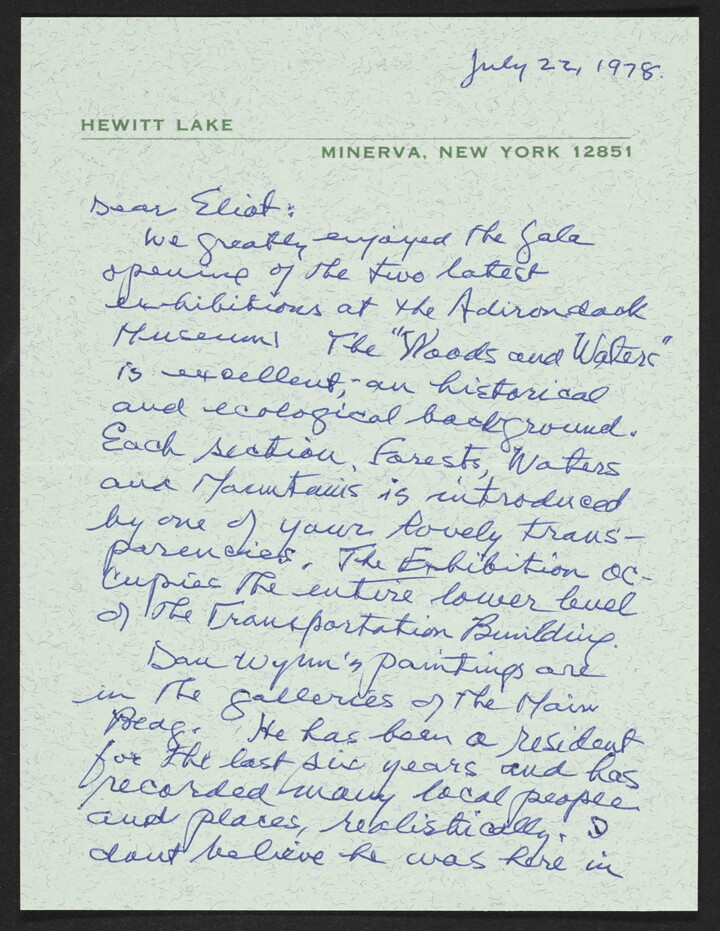 July 22, 1978.
HEWITT LAKE
MINERVA, NEW YORK 12851
Dear Eliot:
We greatly enjoyed the Gala
opening of the two latest
exhibitions at the Adirondack
Museum! The "Woods and Waters"
is excellent,- an historical
and ecological background.
Each section, Forests, Waters
and Mountains is introduced
by one of your lovely trans-
parencies. The Exhibition oc-
cupies the entire lower level
of the Transportation Building.
Dan Wynn's paintings are
in the galleries of the Main
Bldg. He has been a resident
for the last six years and has
recorded many local people
and places, realistically. I
dont believe he was here in